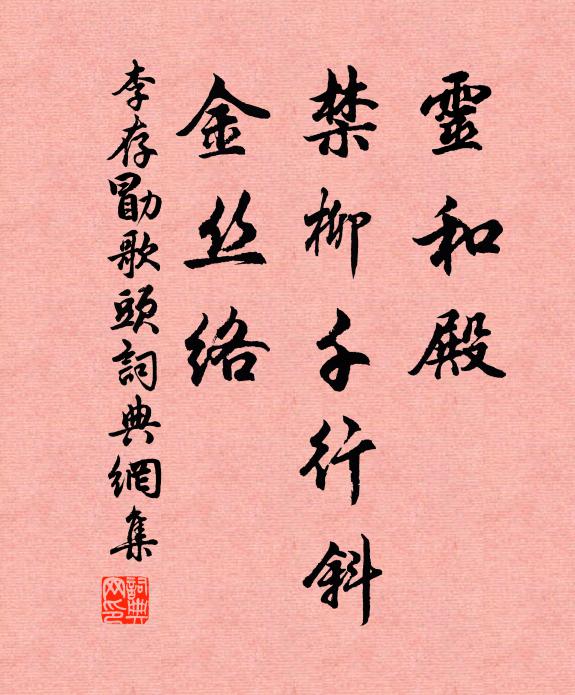 靈和殿
禁柳千行斜
金丝絡
李存勖歌頭詞典網集
詞典網印